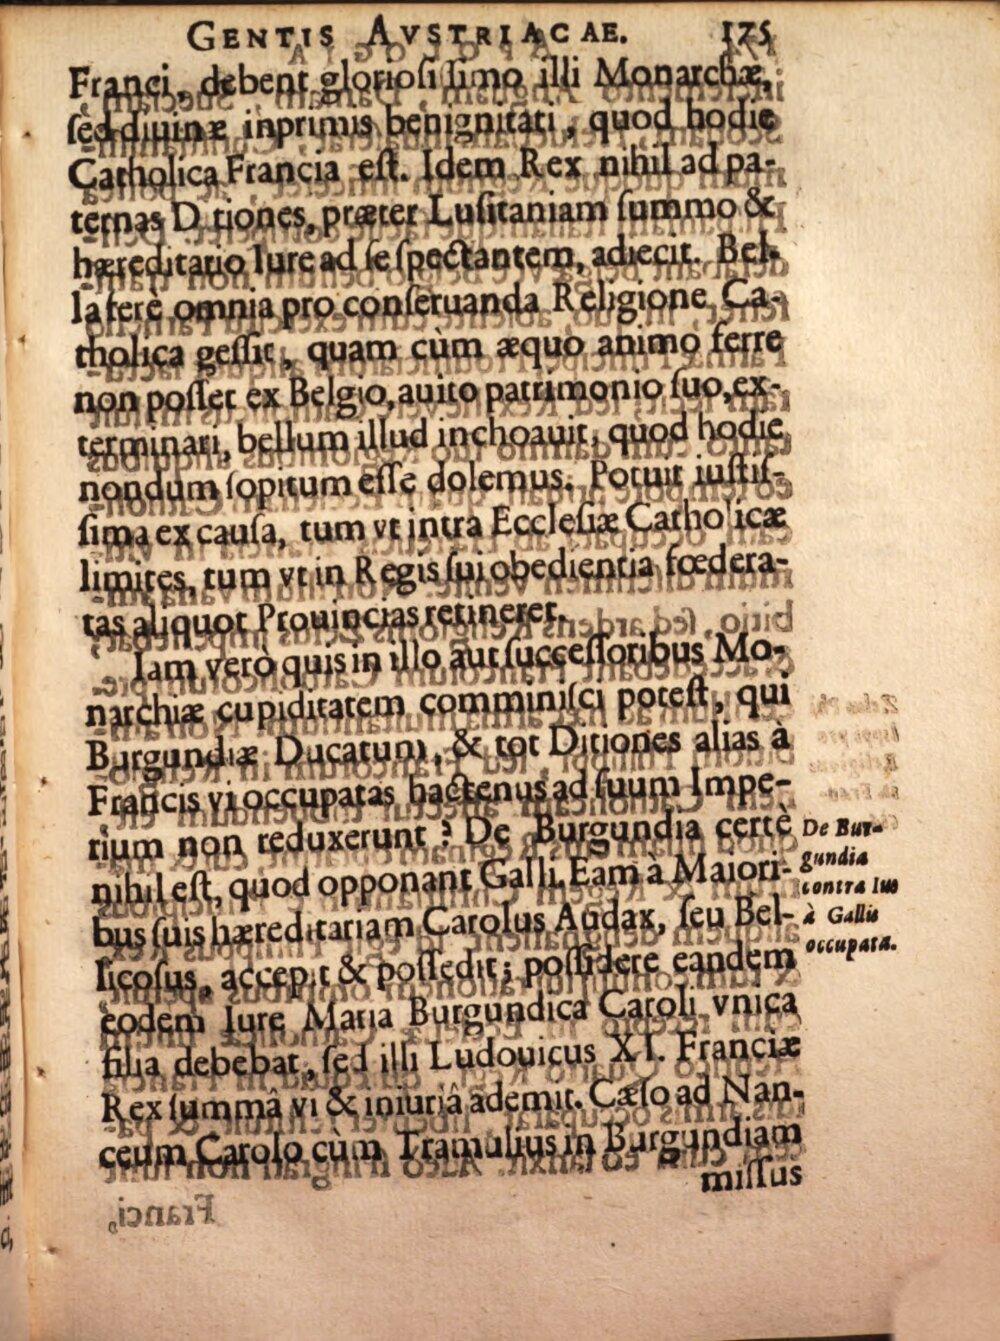 GENTIS AVSTRIACAE. 175
Franci, debent gloriosissimo illi Monarchæ,
sed diuinæ inprimis benignitati, quod hodie
Catholica Francia est. Idem Rex nihil ad pa-
ternas D tiones, præter Lusitaniam summo &
hæreditario Iure ad se spectantem, adiecit. Bel-
la ferè omnia pro conseruanda Religione Ca-
tholica gessit, quam cùm æquo animo ferre
non posset ex Belgio, auito patrimonio suo, ex-
terminari, bellum illud inchoauit, quod hodie
nondum sopitum esse dolemus. Potuit iustis-
sima ex causa, tum vt intra Ecclesiæ Catholicæ
limites, tum vt in Regis sui obedientia fœdera-
tas aliquot Prouincias retineret.
Iam verò quis in illo aut successoribus Mo-
narchiæ cupiditatem comminisci potest, qui
Burgundiæ Ducatum, & tot Ditiones alias à
Francis vi occupatas hactenus ad suum Impe-
rium non reduxerunt? De Burgundia certè
nihil est, quod opponant Galli. Eam à Maiori-
bus suis hæreditariam Carolus Audax, seu Bel-
licosus, accepit & possedit; possidere eandem
eodem Iure Maria Burgundica Caroli vnica
filia debebat, sed illi Ludouicus XI. Franciæ
Rex summâ vi & iniuriâ ademit. Cæso ad Nan-
ceum Carolo cùm Tramulius in Burgundiam
missus
De Bur-
gundia
contra Ius
à Gallis
occupata.